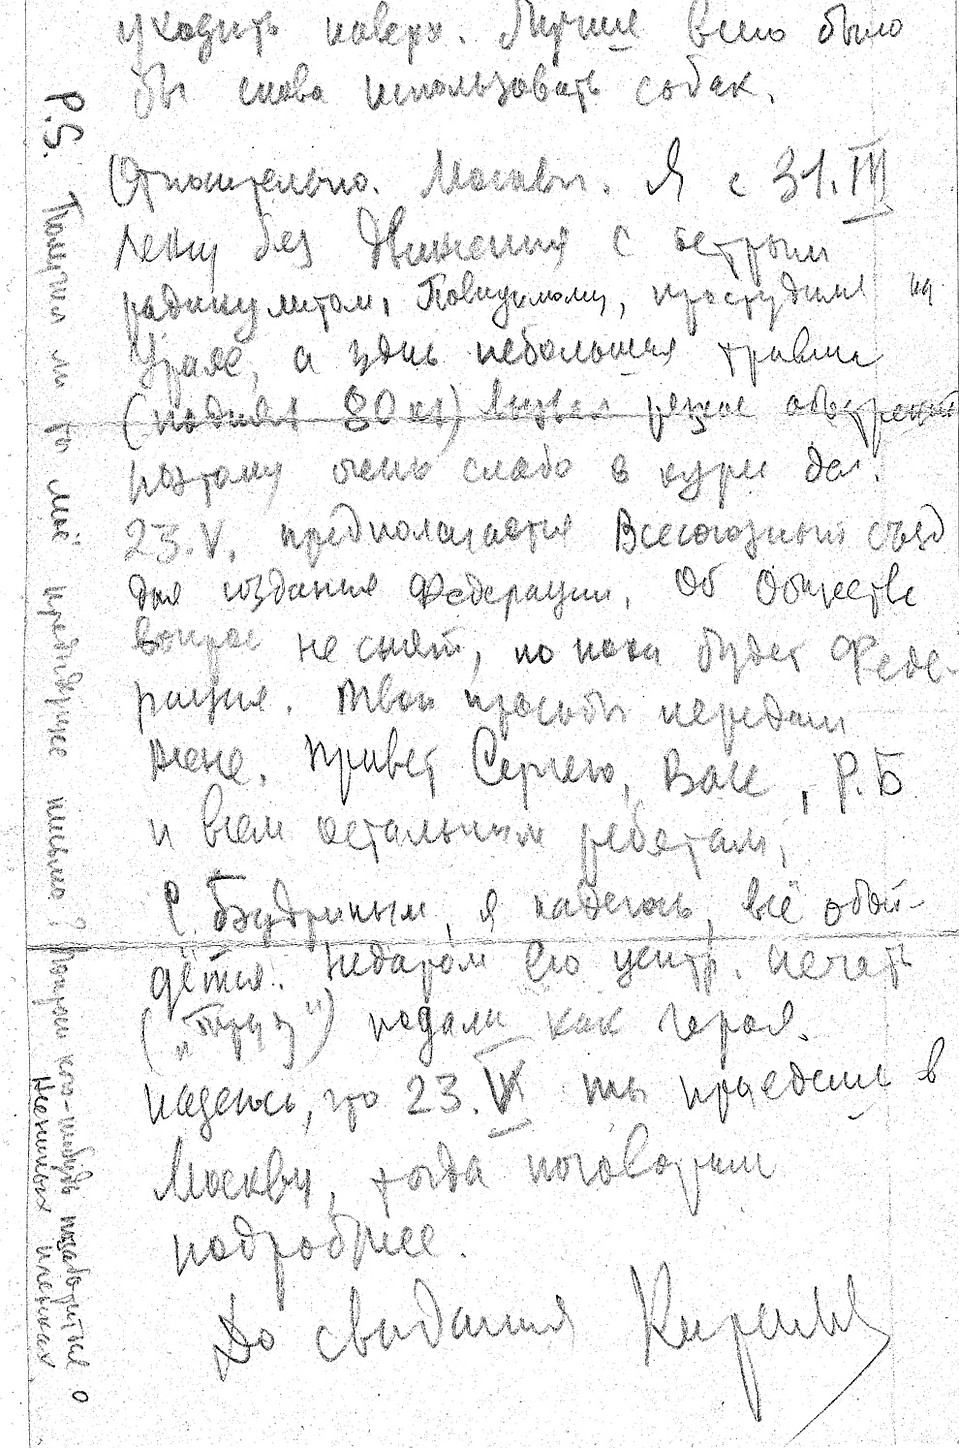 уходить наверх. Лучше всего было
бы снова использовать собак.
Относительно Москвы. Я с 31.III
лежу без движения с острым
радикулитом. Повидимому, простудил на
Урале, а здесь небольшая травма
(поднял 80 кг) вызвал резкое обострение
поэтому очень слабо в курсе дел.
23.V. предполагается Всесоюзный съезд
для создания Федерации. Об Обществе
вопрос не снят, но пока будет Феде-
рация. Твои просьбы передам
Жене. Привет Сергею, Вале, Р.Б
и всем остальным ребятам,
С. Бэудриным, я надеюсь, всё обой-
дётся. Недаром его центр. печать
("Труд") подали как героя.
надеюсь, что 23.V ты приедешь в
Москву, тогда поговорим
подробнее.
До свидания
P.S. Получил ли ты моё предыдущее письмо? Попроси кого-нибудь позаботиться о
Жениных пленках